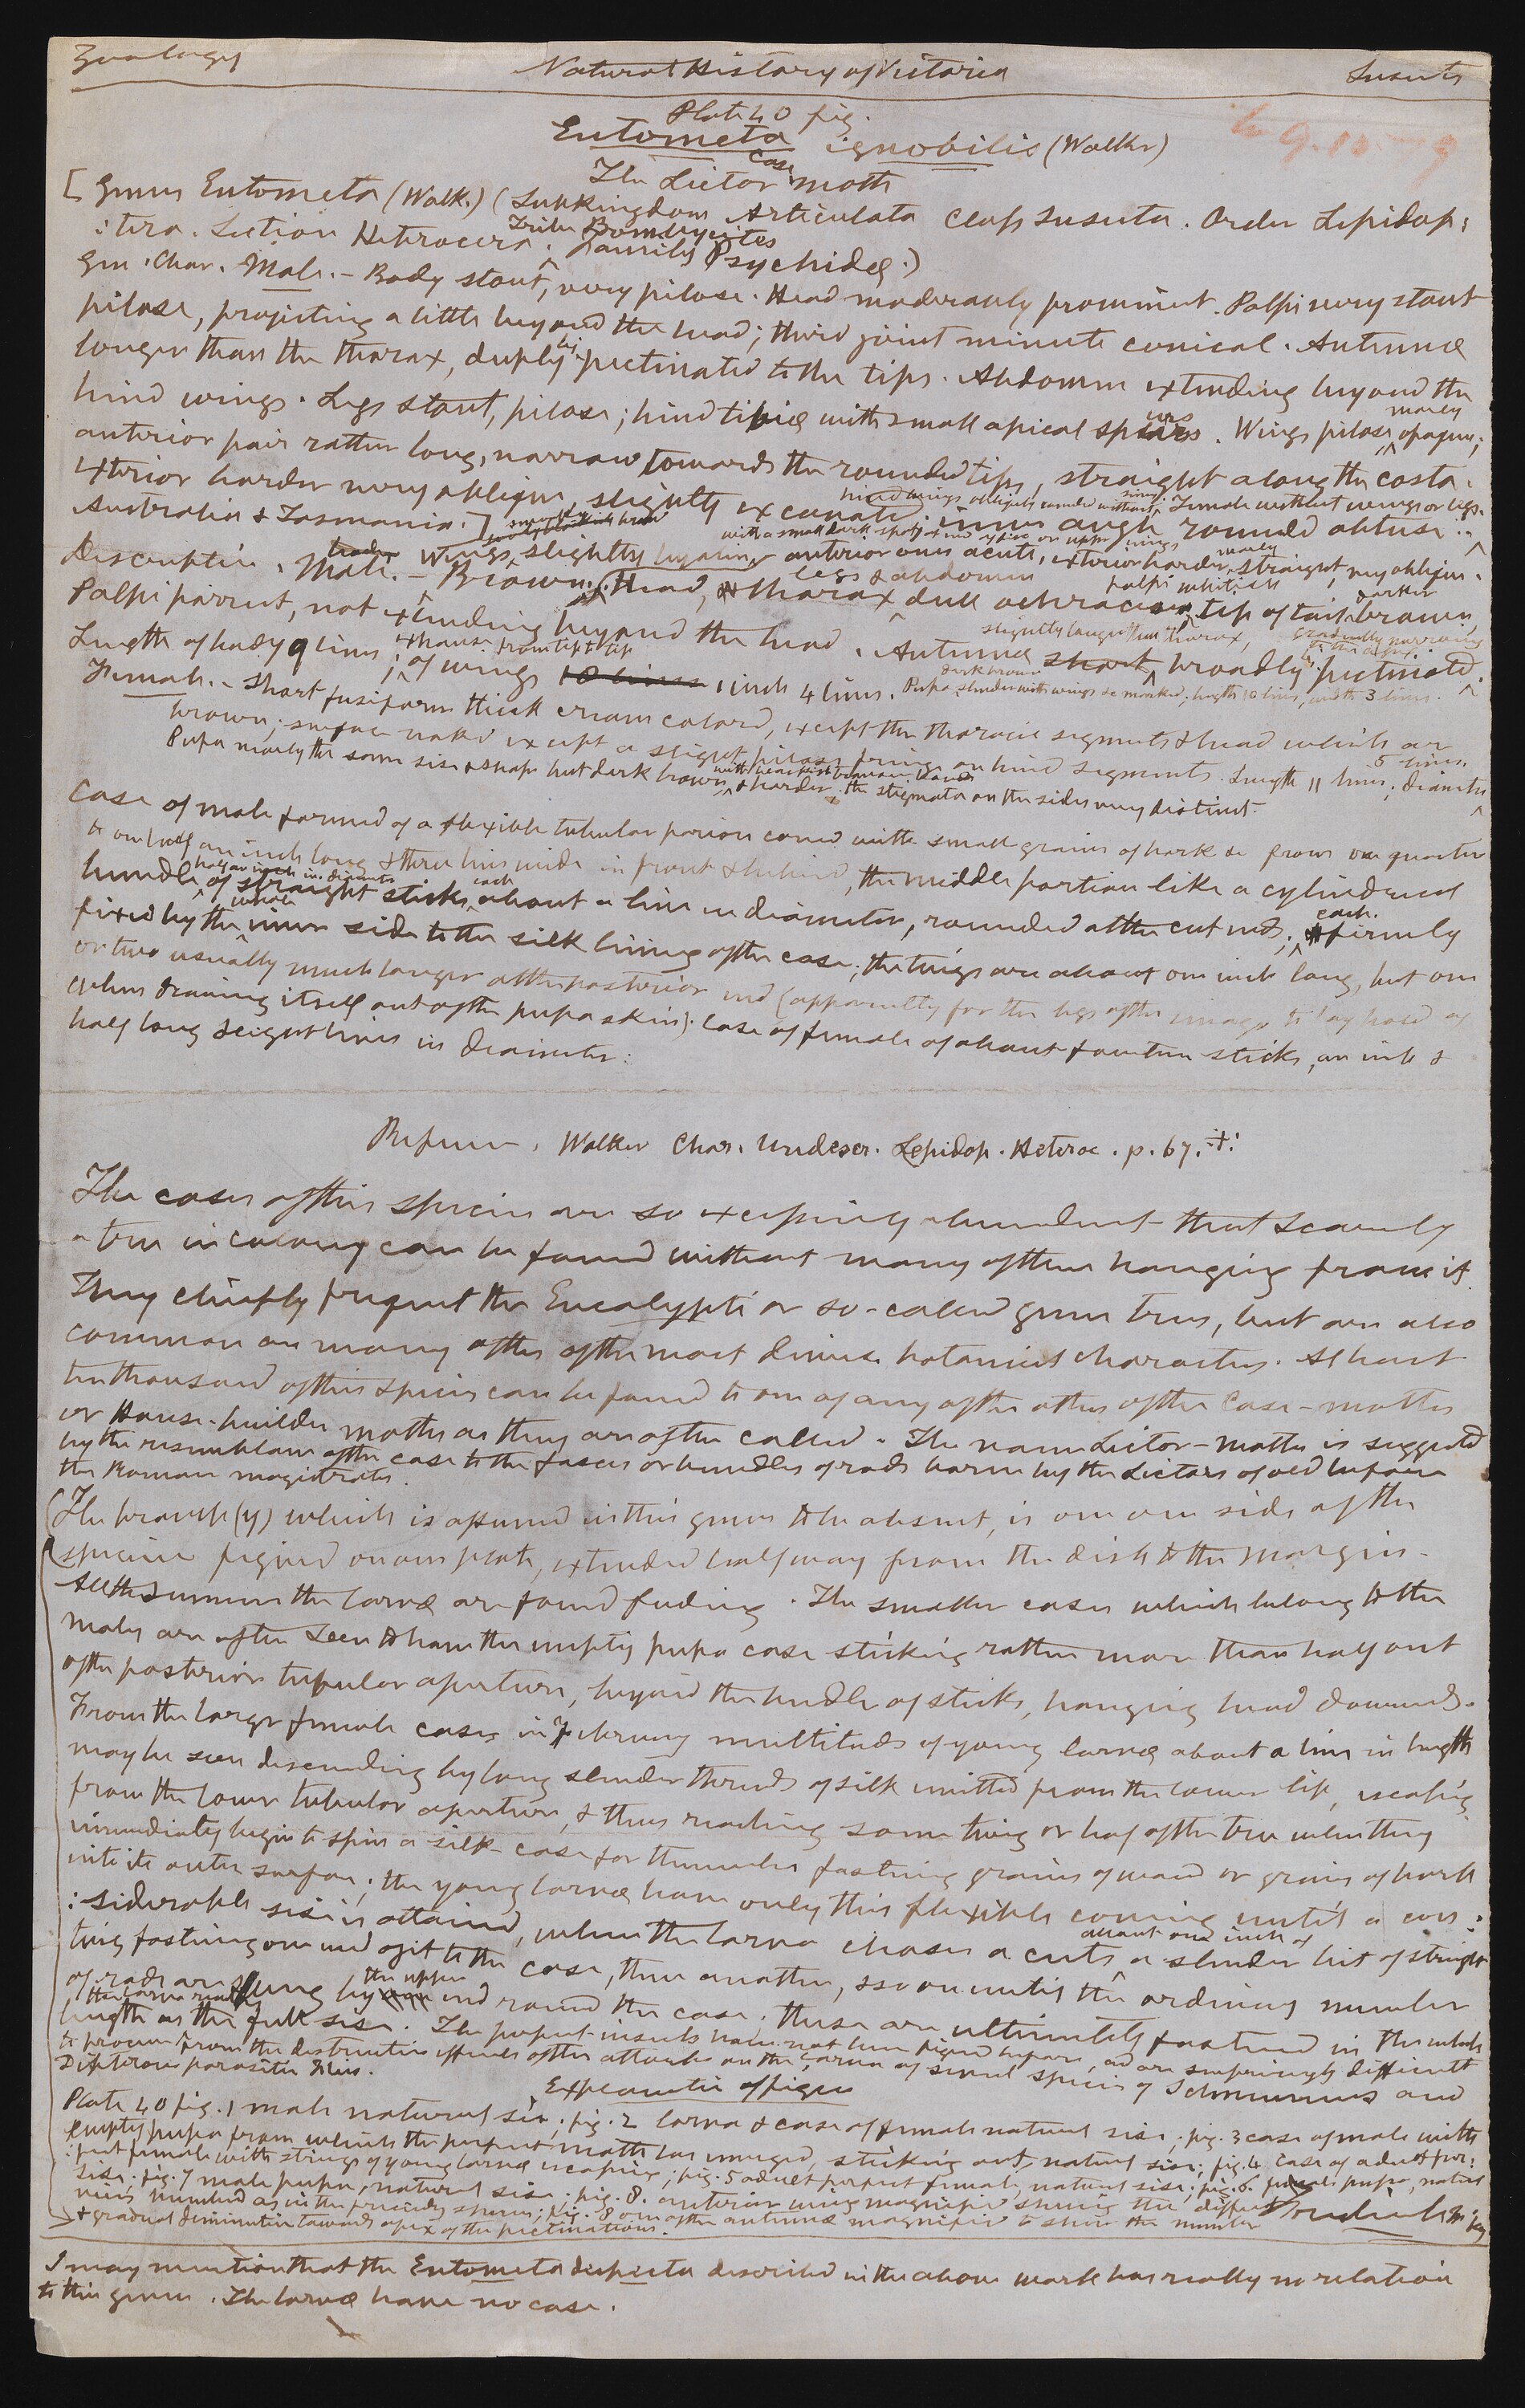 Zoology Natural History of Victoria Insects
Plate 40 fig.
Entometa ignobilis (Walker)
The Lictor case moth
[Genus Entometa (Walk.) (Subkingdom Articulata Class Insecta. Order Lepidop:
:tera. Section Heterocera. Tribe Bombycites Family Psychidæ.)
Gen. Char. Male. – Body stout, very pilose. Head moderately prominent. Palpi very stout
pilose, projecting a little beyond the head; third joint minute conical. Antennæ
longer than the thorax, deeply bi-pectinated to the tips. Abdomen extending beyond the
hind wings. Legs stout, pilose; hind tibiæ with small apical spurs. Wings pilose, nearly opaque;
anterior pair rather long, narrow towards the rounded tips, straight along the costa.
exterior border very oblique, slightly excavated. inner angle rounded obtuse.. hind wings obliquely rounded without Female without wings or legs.
Australia & Tasmania.]
Description. Male. – Brown. wings slightly hyaline, anterior ones acute, exterior border nearly straight, very oblique. with a small dark spot
Head, thorax legs & abdomen dull ochraceous palpi whitish tip of tail darker brown,
Palpi porrect, not extending beyond the head. Antennæ slightly longer than thorax, broadly pectinated, gradually narrowing
Length of body 9 lines; expanse from tip to tip of wings 1 inch 4 lines. Pupa dark brown slender with wings &c marked; length 10 lines, width 3 lines.
Female. – Short fusiform thick cream colored, except the thoracic segments & head which are
brown; surface naked except a slight pilose fringe on hind segments. Length 11 lines; diameter 5 lines.
Pupa nearly the same size & shape but dark brown & harder, the stigmata on the sides very distinct.
Case of male formed of a flexible tubular porion coverd with small grains of bark &c from one quarter
to one half an inch long & three lines wide in front & behind, the middle portion like a cylindrical
bundle half an inch in diameter of straight sticks each about a line in diameter, rounded at the cut ends, each firmly
fixed by the whole inner side to the silk lining of the case; the twigs are about one inch long, but one
or two usually much longer at the posterior end (apparently for the legs of the imago to lay hold of
when drawing itself out of the pupa skin). Case of female of about fourteen sticks, an inch &
half long & eight lines in diameter:
Reference. Walker Char. Undescr. Lepidop. Heteroc. p. 67.
The cases of this species are so excessively abundant that scarcely
a tree in colony can be found without many of them hanging from it.
They chiefly frequent the Eucalypti or so-called gum trees, but are also
common on many others of the most diverse botanical characters. At least
ten thousand of this species can be found to one of any of the others of the Case-moths
or House-builder moths as they are often called. The name Lictor-moth is suggested
by the resemblance of the case to the fasces or bundles of rods borne by the Lictors of old before
the Roman magistrates.
(The branch (y) which is assumed in this genus to be absent, is on one side of the
specimen figured on our plate, extended half way from the disk to the margin.
All the Summer the larvæ are found feeding. The smaller cases which belong to the
males are often seen to have the empty pupa case sticking rather more than half out
of the posterior tubular aperture, beyond the bundle of sticks, hanging head downwards.
From the larger female cases in February multitudes of young larvæ about a line in length
may be seen descending by long slender threads of silk emitted from the lower lip, escaping
from the lower tubular aperture, & thus reaching some twig or leaf of the tree when they
immediately begin to spin a silk case for themselves fastening grains of wood or grains of bark
into its outer surface; the young larvæ have only this flexible covering until a con:
:siderable size is attained, when the larva chooses & cuts a slender bit about one inch of straight
twig fastening one end of it to the case, then another, & so on until the ordinary number
of rods are slung by the upper end round the case. These are ultimately fastened in the whole
length as the larva reaches the full size. The perfect insects have not been figured before, and are surprisingly difficult
to procure from the destructive effects of the attacks on the larva of several species of Ichneumons and
Dipterous parasitic flies.
Explanation of figures
Plate 40 fig. 1 male natural size; fig. 2 larva & case of female natural size; fig. 3 case of male with
empty pupa from which the perfect moth has emerged, sticking out, natural size; fig. 4 case of adult per:
:fect female with strings of young larvæ escaping; fig. 5 adult perfect female, natural size; fig. 6. female pupa, natural
size; fig. 7 male pupa, natural size. fig. 8. anterior wing magnified showing the
veins numbered as in the preceding species; fig. 8 one of the antennæ magnified to show the number
& gradual diminution towards apex of the pectinations. Frederick McCoy
I may mention that the Entometa despecta described in the above work has really no relation
to this genus. The larvæ have no case.